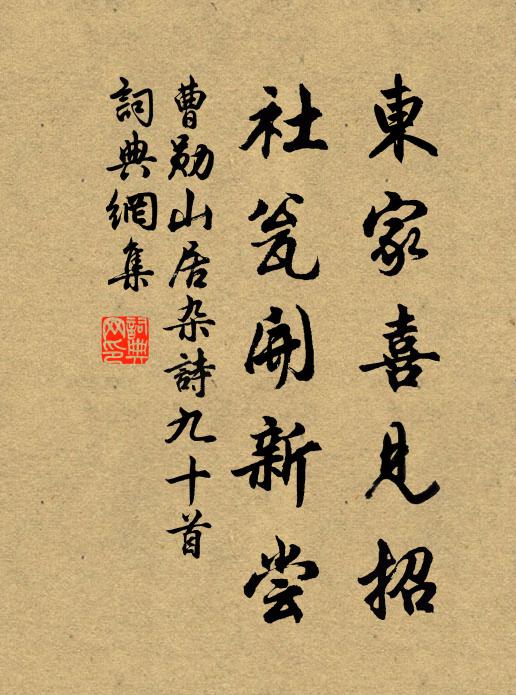 東家喜見招
社瓮開新尝
曹勋山居杂詩九十首
詞典網集
詞典網印